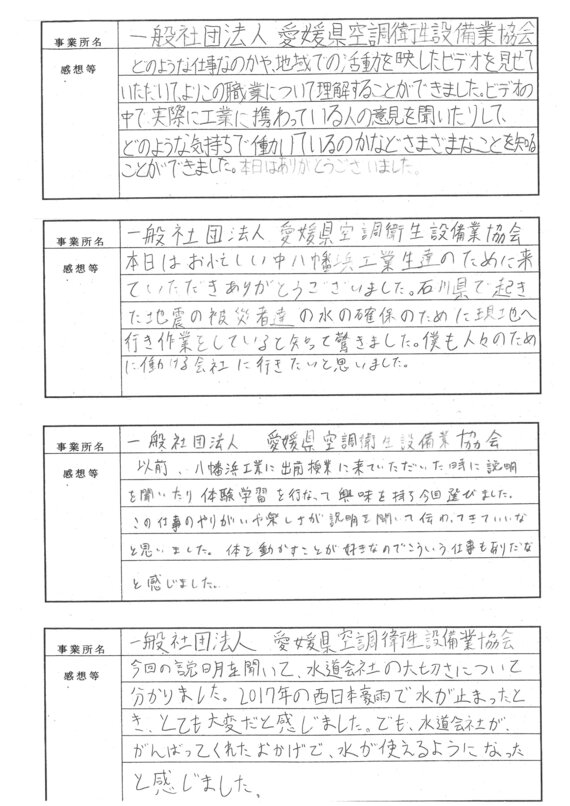 事業所名
一般社団法人 愛媛県空調衛生設備業協会
感想等
どのような仕事なのかや、地域での活動を映したビデオを見せて
いただいて、よりこの職業について理解することができました。ビデオの
中で実際に工業に携わっている人の意見を聞いたりして、
どのような気持ちで働いているのかなどさまざまなことを知る
ことができました。本日はありがとうございました。
事業所名
一般社団法人 愛媛県空調衛生設備業協会
感想等
本日はお忙しい中八幡浜工業生達のために来
ていただきありがとうございました。石川県で起き
た地震の被災者達の水の確保のために現地へ
行き作業をしていると知って驚きました。僕も人々のため
に働ける会社に行きたいと思いました。
事業所名
一般社団法人 愛媛県空調衛生設備業協会
感想等
以前、八幡浜工業に出前授業に来ていただいた時に説明
を聞いたり体験学習を行なって興味を持ち今回選びました。
この仕事のやりがいや楽しさが説明を聞いて伝わってきていいな
と思いました。体を動かすことが好きなのでこういう仕事もありだな
と感じました。
事業所名
一般社団法人 愛媛県空調衛生設備業協会
感想等
今回の説明を聞いて、水道会社の大切さについて
分かりました。2017年の西日本豪雨で水が止まったと
き、とても大変だと感じました。でも、水道会社が、
がんばってくれたおかげで、水が使えるようになった
と感じました。